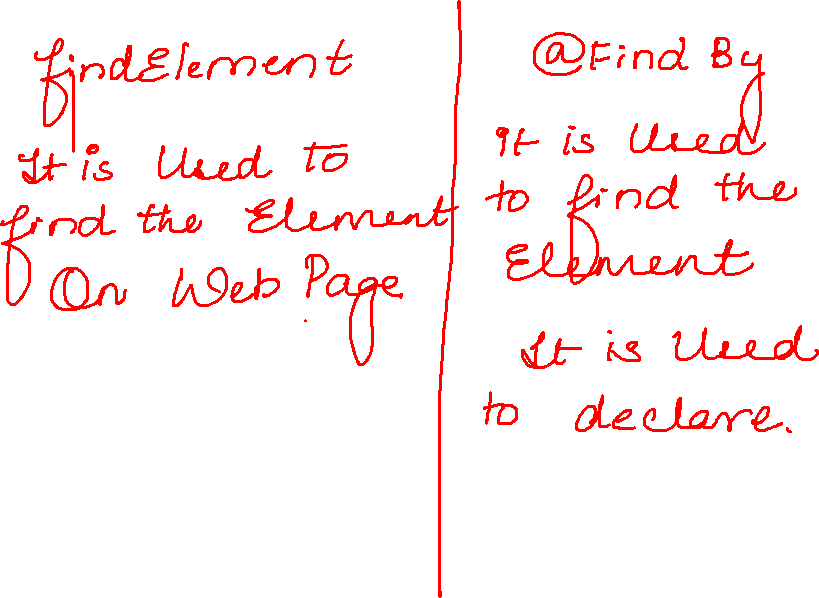 findElement
It is Used to
find the Element
On Web Page
@Find By
it is Used
to find the
Element
It is Used
to declare.